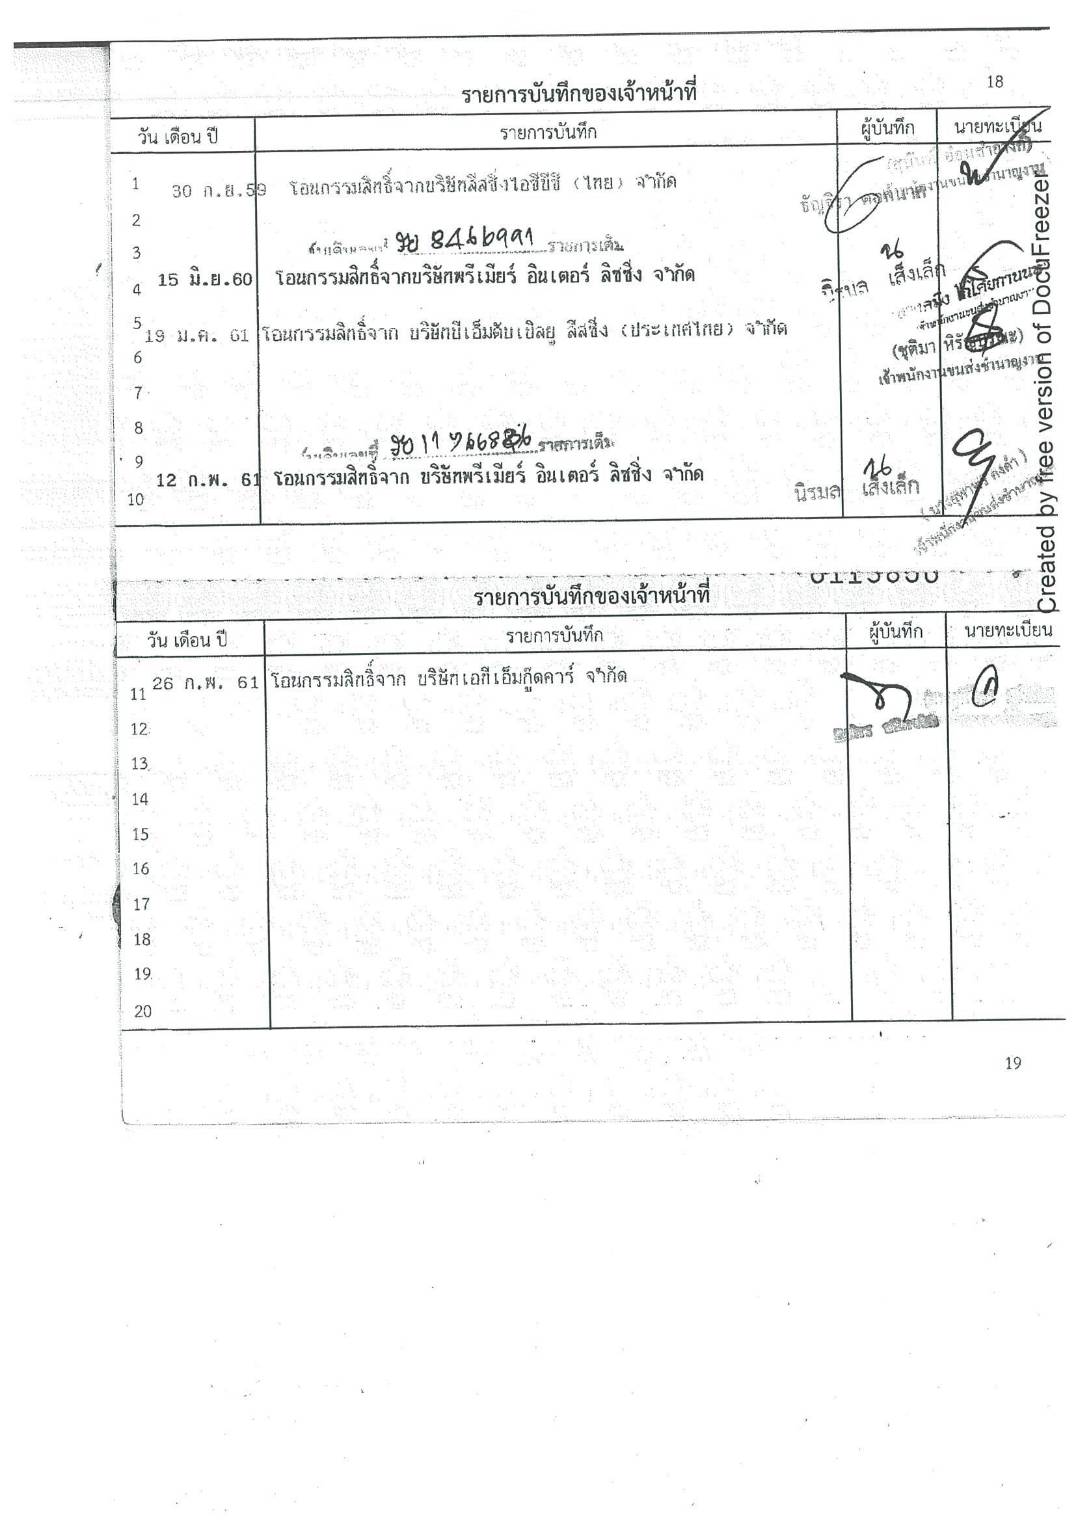 18
รายการบันทึกของเจ้าหน้าที่
วัน เดือน ปี รายการบันทึก ผู้บันทึก นายทะเบียน
1 30 ก.ย.59 โอนกรรมสิทธิ์จากบริษัทลีสซิ่งไอซีบีซี (ไทย) จำกัด
2
3 8466991 รายการเดิม
4 15 มิ.ย.60 โอนกรรมสิทธิ์จากบริษัทพรีเมียร์ อินเตอร์ ลิซซิ่ง จำกัด นิรมล เส็งเล็ก
5 19 ม.ค. 61 โอนกรรมสิทธิ์จาก บริษัทบีเอ็มดับเบิลยู ลีสซิ่ง (ประเทศไทย) จำกัด
(ชุติมา
6
เจ้าพนักงานขนส่งชำนาญงาน
7
8
9 รายการเดิม
10 12 ก.พ. 61 โอนกรรมสิทธิ์จาก บริษัทพรีเมียร์ อินเตอร์ ลิซซิ่ง จำกัด นิรมล เส็งเล็ก
Created by free version of DocuFreezer
รายการบันทึกของเจ้าหน้าที่
วัน เดือน ปี รายการบันทึก ผู้บันทึก นายทะเบียน
11 26 ก.พ. 61 โอนกรรมสิทธิ์จาก บริษัทเอทีเอ็มกู๊ดคาร์ จำกัด
12
13
14
15
16
17
18
19
20
19